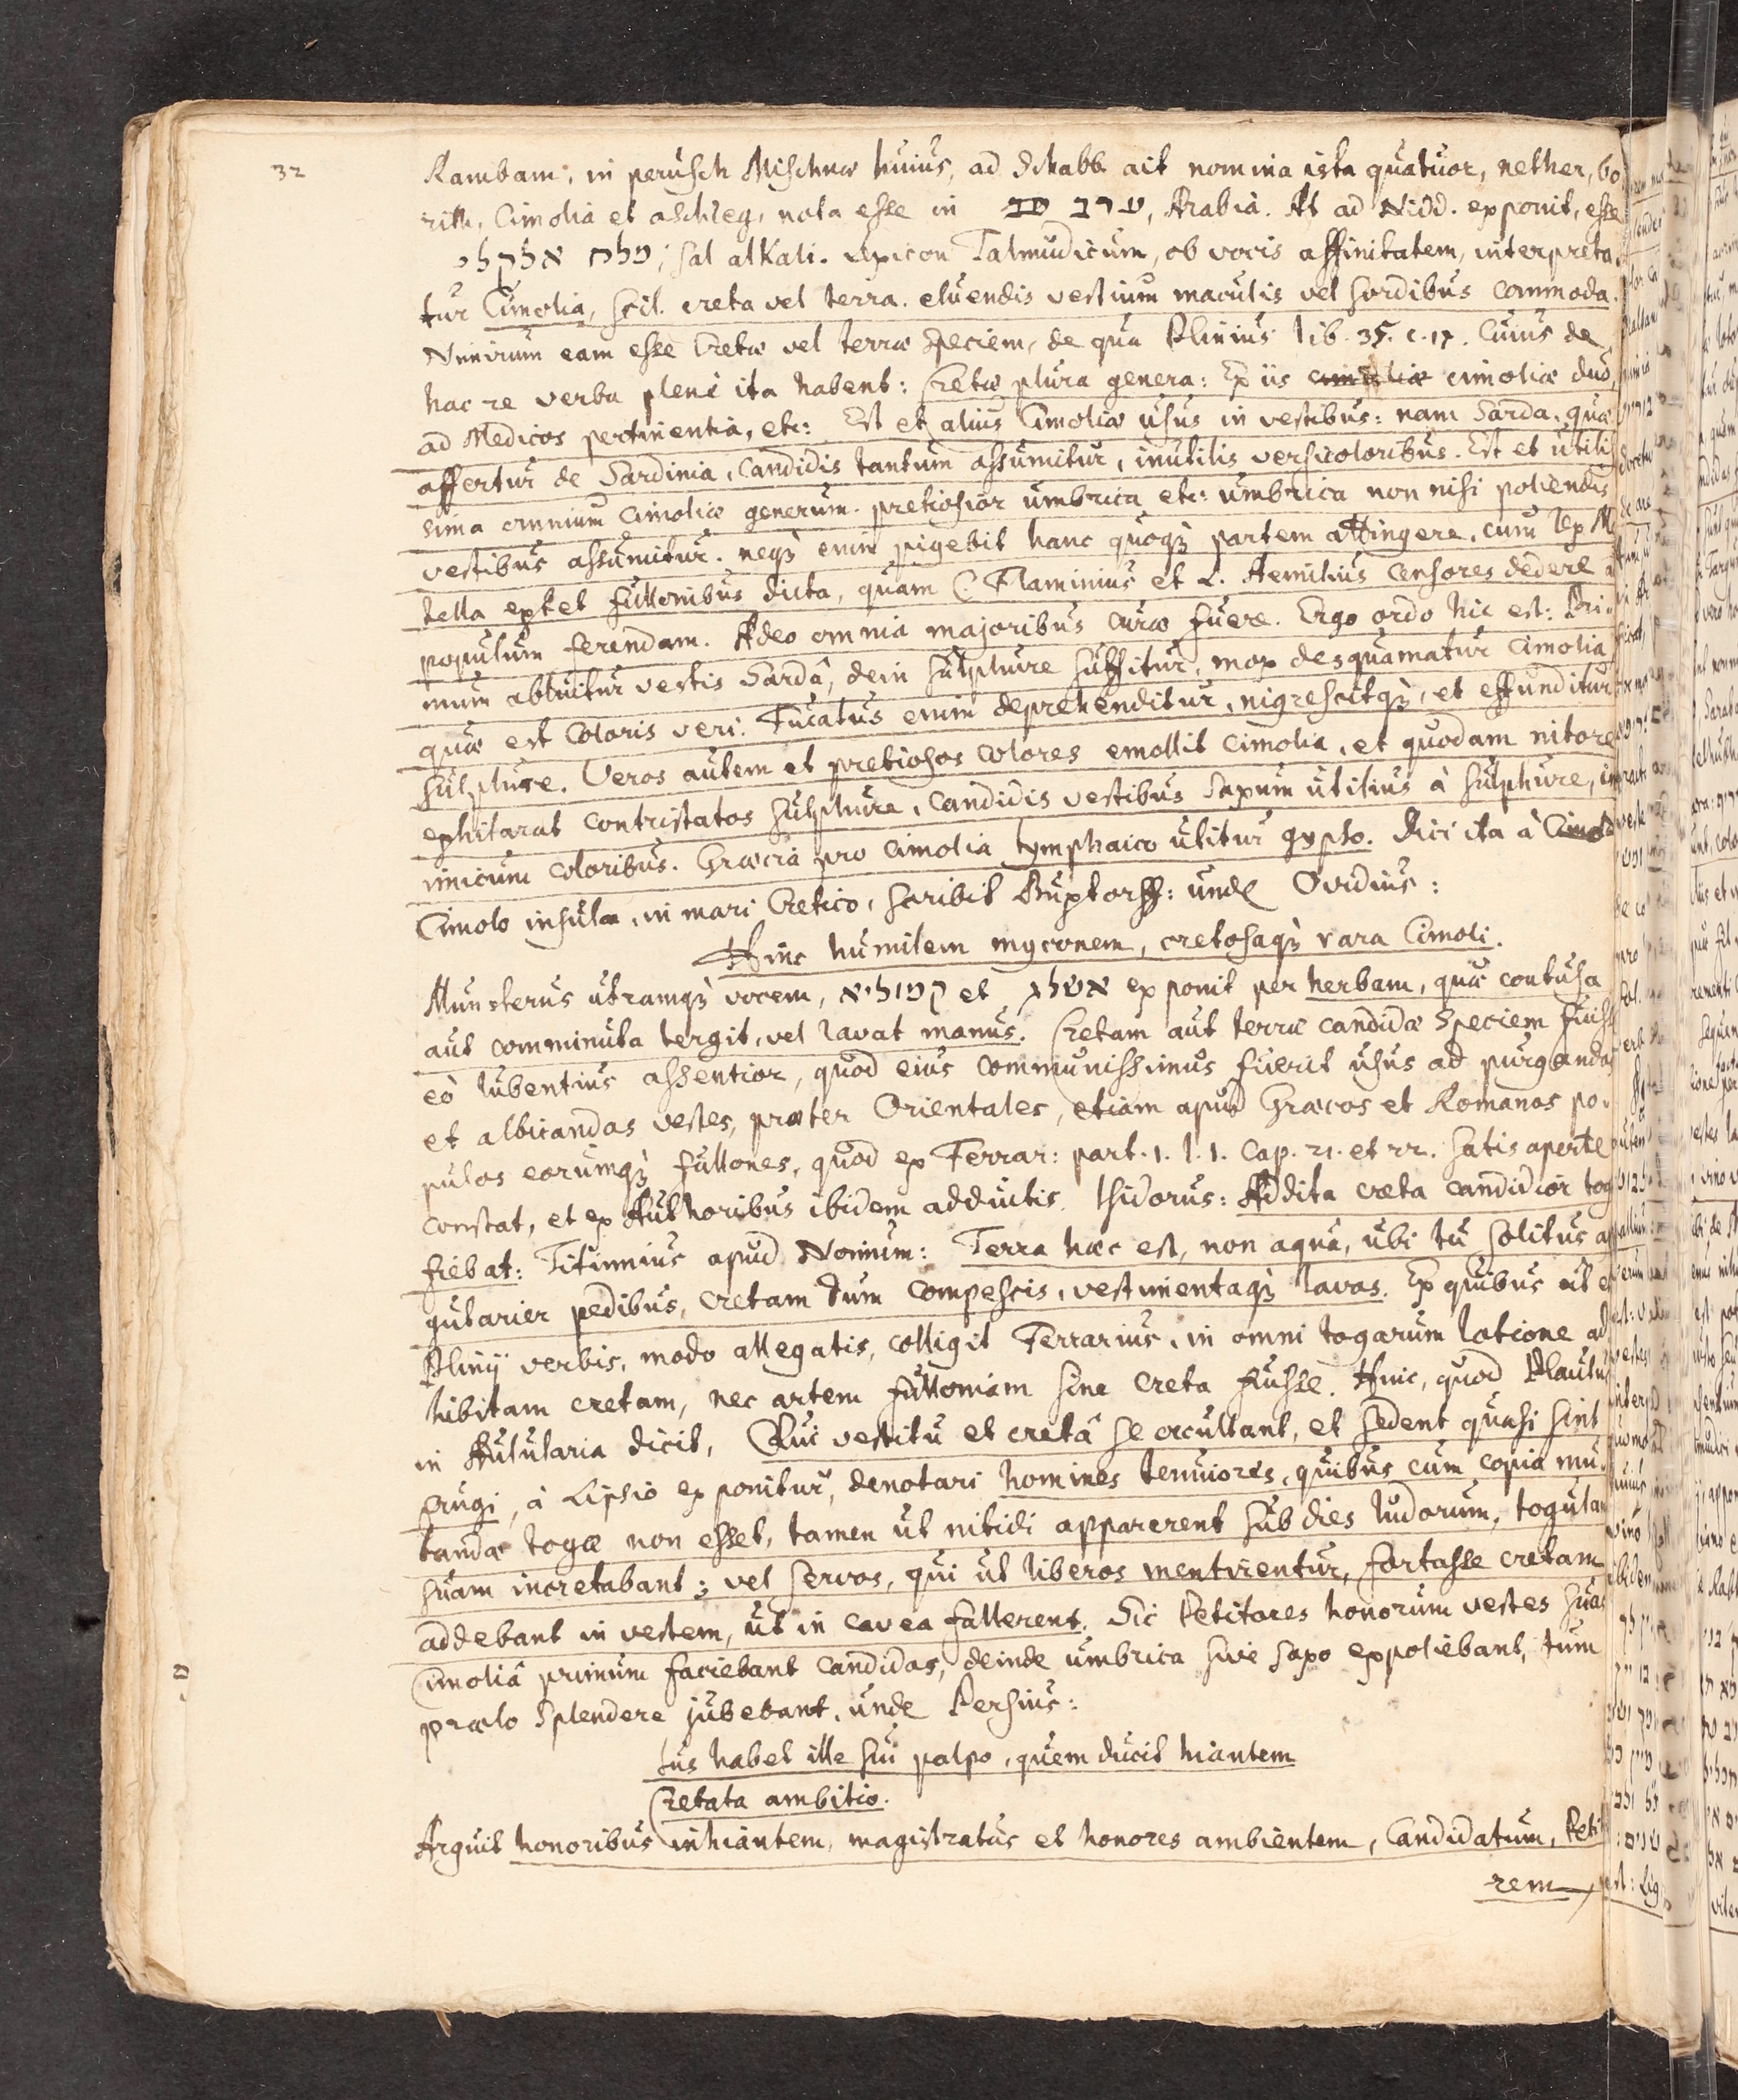 32
Rambam, in perusch Mischnæ huius, ad Schabb. ait nomina ista quatuor, nether, bo
rith, Cimolia et aschleg, nota esse in ערב, Arabia. At ad Nidd. exponit, esse
מלח אלקלי, sal alkali. Lexicon Talmudicum, ob vocis affinitatem, interpreta-
tur Cimolia, scil. creta vel terra. eluendis vestium maculis vel sordibus commoda.
Nimirum eam esse Cretæ vel terræ speciem, de qua Plinius lib. 35. c. 17. Cuius de
hac re verba plenè ita habent: Cretæ plura genera: Ex iis cimoliæ duo,
ad Medicos pertinentia, etc: Est et alius Cimoliæ usus in vestibus: nam Sarda, quæ
affertur de Sardinia, candidis tantum assumitur, inutilis versicoloribus. Est et utilis
sima omnium Cimoliæ generum. pretiosior umbrica etc: umbrica non nisi poliendis
vestibus assumitur. neq; enim pigebit hanc quoq; partem attingere, cum lex Me
tella extet fullonibus dicta, quam C. Flaminius et L. Aemilius Censores dedere a
populum ferendam. Adeo omnia majoribus curæ fuere. Ergo ordo hic est: Pri-
mum abluitur vestis Sardâ, dein sulphure suffitur, mox desquamatur Cimolia
quæ est coloris veri. Fucatus enim deprehenditur, nigrescitq;, et effunditur
sulphure. Veros autem et pretiosos colores emollit Cimolia, et quodam nitore
exhilarat contristatos sulphure, candidis vestibus saxum utilius à sulphure, i
nimicum coloribus. Græcia pro cimolia tymphaico utitur gypso. Dici ita à
Cimolo insula, in mari Cretico, scribit Buxtorff: unde Ovidius:
Hinc humilem myconem, cretosaq; rara Cimoli.
Munsterus utramq; vocem, קמוליא et אשלג exponit per herbam, quæ contusa
aut comminuta tergit, vel lavat manus. Cretam aut terræ candidæ speciem fuiss
eò lubentius assentior, quod eius communissimus fuerit usus ad purgandas
et albicandas vestes, præter Orientales, etiam apud Græcos et Romanos po-
pulos eorumq; fullones, quod ex Ferrar: part. 1. l. 1. cap. 21. et 22. satis aperte
constat, et ex Authoribus ibidem adductis. Isidorus: Addita creta candidior tog
fiebat: Titinnius apud Nonium: Terra hæc est, non aqua, ubi tu solitus a
gutarier pedibus, cretam dum compescis, vestimentaq; lavas. Ex quibus ut e
Plinij verbis, modo allegatis, colligit Ferrarius, in omni togarum lotione ad
hibitam cretam, nec artem fulloniam sine creta fuisse. Huic, quod Plautus
in Aulularia dicit, Qui vestitu et cretâ se occultant, et sedent quasi sint
frugi, à Lipsio exponitur, denotari homines tenuiores, quibus cum copia mu-
tandæ togæ non esset, tamen ut nitidi apparerent sub dies ludorum, togulam
suam incretabant; vel servos, qui ut liberos mentirentur, fortasse cretam
addebant in vestem, ut in cavea fallerent. Sic Petitores honorum vestes suas
Cimoliâ primum faciebant candidas, deinde umbrica sive saxo expoliebant, tum
prælo splendere jubebant, unde Persius:
Jus habet ille sui palpo, quem ducit hiantem
Cretata ambitio.
Arguit honoribus inhiantem, magistratus et honores ambientem, Candidatum, Petit
rem,